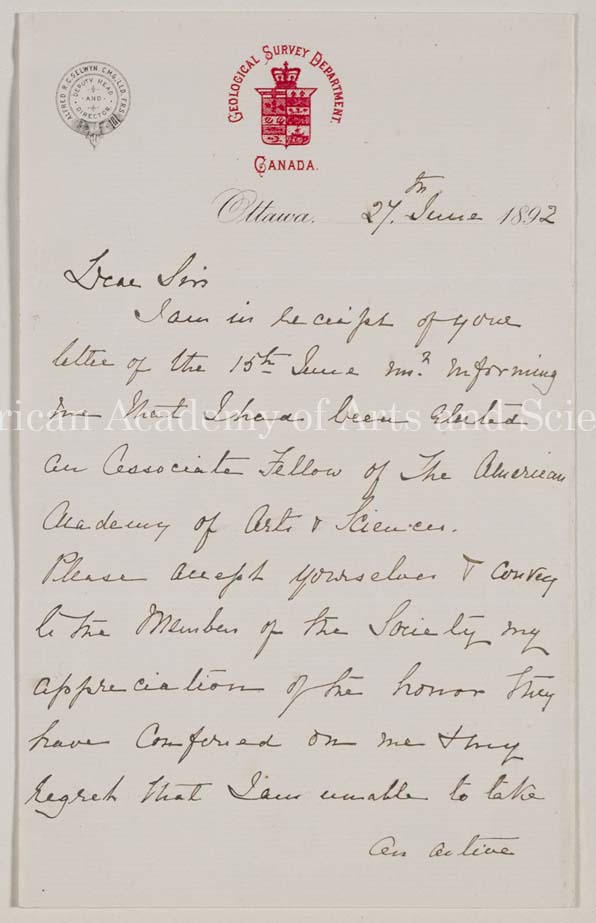 ALFRED R. C. SELWYN, C.M.G., LL.D., F.R.S.
DEPUTY HEAD
AND
DIRECTOR
GEOLOGICAL SURVEY DEPARTMENT.
CANADA.
Ottawa. 27th June 1892
Dear Sirs
I am in receipt of your
letter of the 15th June informing
me that I had been elected
an Associate Fellow of the American
Academy of Arts & Sciences.
Please accept yourselves & convey
to the Members of the Society my
appreciation of the honor they
have conferred on me & my
regret that I am unable to take
an active
rican Academy of Arts and Scie